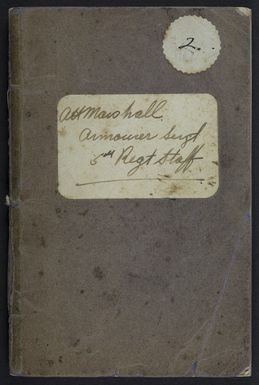 2.
A H Marshall
Armourer Sergt
5th Regt Staff